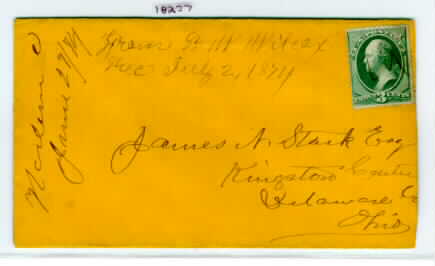 18227
From W Wilcox
Rec July 2, 1874
June 29/74
James N. Stark Esq
Kingston Centre
Delaware Co
Ohio